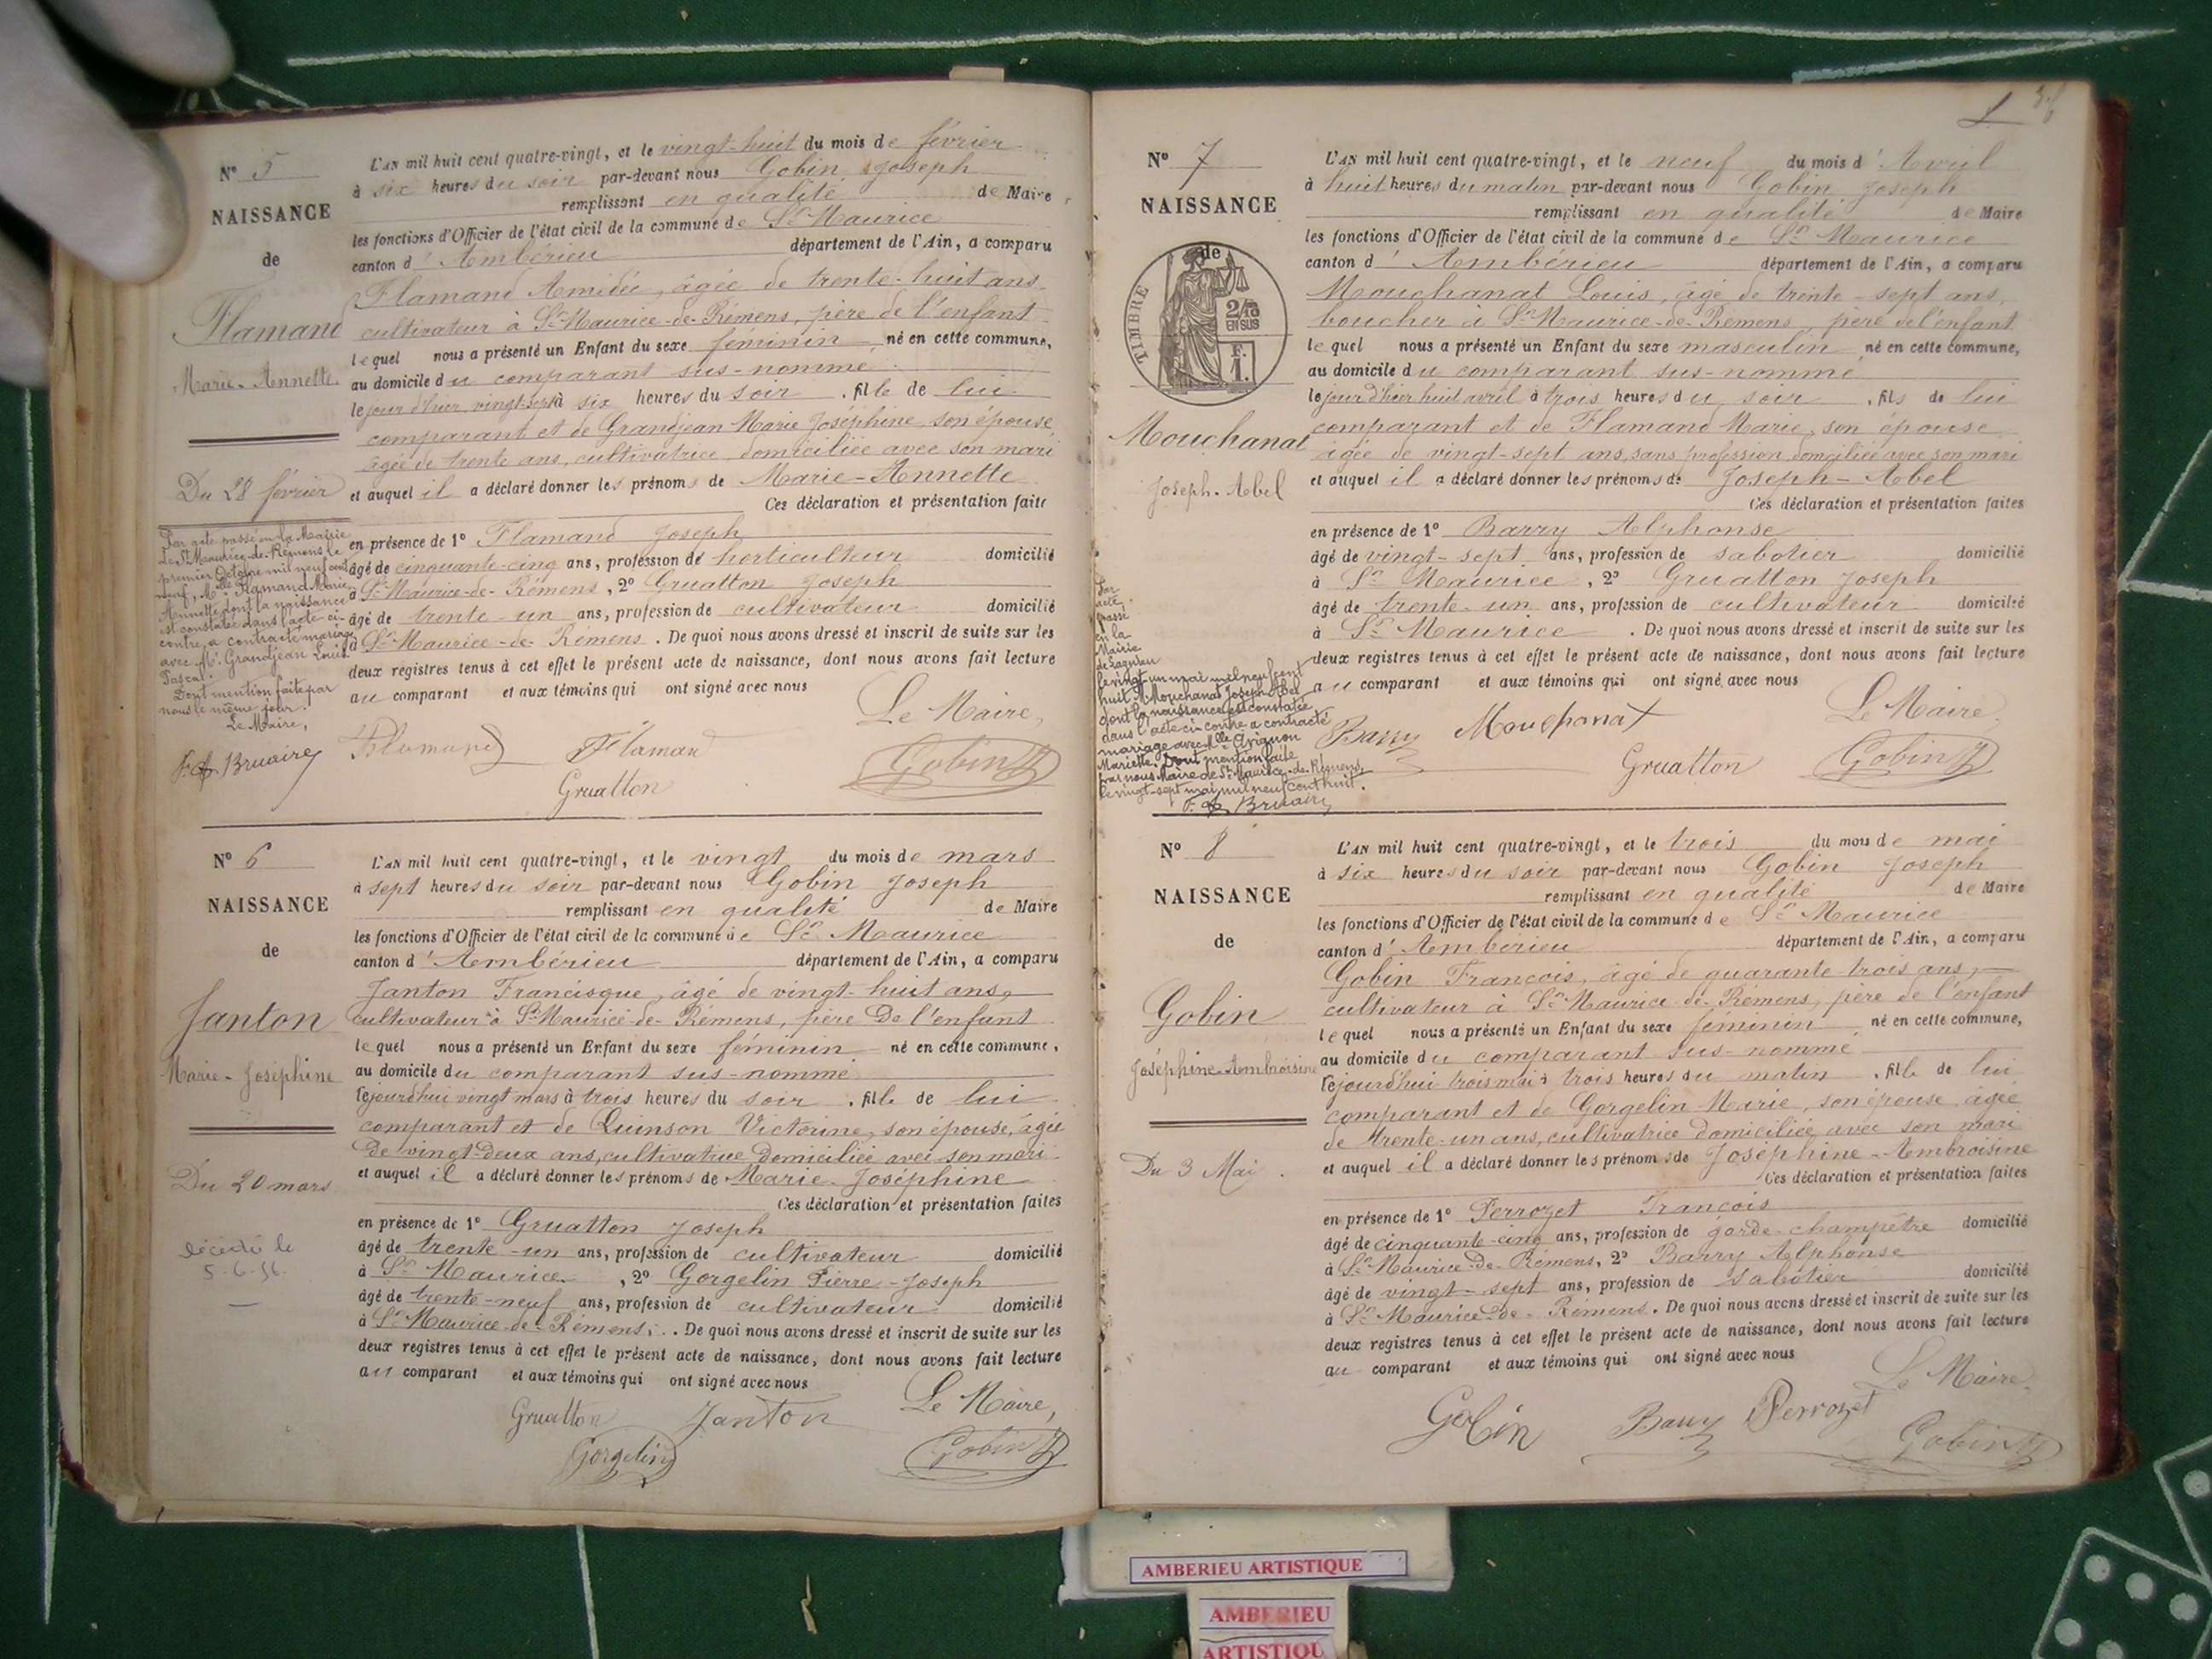 N° 5
NAISSANCE
de
Flamand
Marie-Annette
Du 28 février
Par acte passé en la Mairie
de St Maurice-de-Rémens le
premier Octobre mil neuf cent
neuf, Melle Flamand Marie
Annette dont la naissance
est constatée dans l'acte ci-
contre, a contracté mariage
avec Mr. Grandjean Louis
Pascal.
Dont mention faite par
nous le même jour.
Le Maire,
F. Bruaire
L'AN mil huit cent quatre-vingt, et le vingt-huit du mois de février
à six heures du soir par-devant nous Gobin Joseph
remplissant en qualité de Maire
les fonctions d'Officier de l'état civil de la commune de St Maurice
canton d'Ambérieu département de l'Ain, a comparu
Flamand Amédée, âgée de trente-huit ans
cultivateur à St Maurice-de-Rémens, père de l'enfant
lequel nous a présenté un Enfant du sexe féminin né en cette commune,
au domicile du comparant sus-nommé
le jour d'hier vingt-sept à six heures du soir, fille de lui
comparant et de Grandjean Marie Joséphine, son épouse
âgée de trente ans, cultivatrice domiciliée avec son mari
et auquel il a déclaré donner les prénoms de Marie-Annette
Ces déclaration et présentation faite
en présence de 1° Flamand Joseph
âgé de cinquante-cinq ans, profession de horticulteur domicilié
à St Maurice-de-Rémens, 2° Gruatton Joseph
âgé de trente-un ans, profession de cultivateur domicilié
à St Maurice-de-Rémens. De quoi nous avons dressé et inscrit de suite sur les
deux registres tenus à cet effet le présent acte de naissance, dont nous avons fait lecture
au comparant et aux témoins qui ont signé avec nous
Le Maire,
Flamand Flamand Gobin
Gruatton
N° 6
NAISSANCE
de
Janton
Marie-Joséphine
Du 20 mars
décédé le
5-6-56
L'AN mil huit cent quatre-vingt, et le vingt du mois de mars
à sept heures du soir par-devant nous Gobin Joseph
remplissant en qualité de Maire
les fonctions d'Officier de l'état civil de la commune de St Maurice
canton d'Ambérieu département de l'Ain, a comparu
Janton Francisque, âgé de vingt-huit ans,
cultivateur à St Maurice-de-Rémens, père de l'enfant
lequel nous a présenté un Enfant du sexe féminin né en cette commune,
au domicile du comparant sus-nommé
cejourd'hui vingt mars à trois heures du soir, fille de lui
comparant et de Quinson Victorine, son épouse, âgée
de vingt-deux ans, cultivatrice domiciliée avec son mari
et auquel il a déclaré donner les prénoms de Marie-Joséphine
Ces déclaration et présentation faites
en présence de 1° Gruatton Joseph
âgé de trente-un ans, profession de cultivateur domicilié
à St Maurice, 2° Gorgelin Pierre-Joseph
âgé de trente-neuf ans, profession de cultivateur domicilié
à St Maurice-de-Rémens. De quoi nous avons dressé et inscrit de suite sur les
deux registres tenus à cet effet le présent acte de naissance, dont nous avons fait lecture
au comparant et aux témoins qui ont signé avec nous
Le Maire,
Gruatton Janton
Gorgelin Gobin
N° 7
NAISSANCE
de
TIMBRE
2/10
EN SUS
F.
1.
Mouchanat
Joseph-Abel
Par
acte
passé
en la
Mairie
de Lagnieu
le vingt un mai mil neuf cent
huit, Mr Mouchanat Joseph Abel
dont la naissance est constatée
dans l'acte ci-contre a contracté
mariage avec Melle Avignon
Mariette. Dont mention faite
par nous Maire de St Maurice-de-Rémens,
le vingt-sept mai mil neuf cent huit.
F. Bruaire
L'AN mil huit cent quatre-vingt, et le neuf du mois d'Avril
à huit heures du matin par-devant nous Gobin Joseph
remplissant en qualité de Maire
les fonctions d'Officier de l'état civil de la commune de St Maurice
canton d'Ambérieu département de l'Ain, a comparu
Mouchanat Louis, âgé de trente-sept ans,
boucher à St Maurice-de-Rémens, père de l'enfant
lequel nous a présenté un Enfant du sexe masculin né en cette commune,
au domicile du comparant sus-nommé
le jour d'hier huit avril à trois heures du soir, fils de lui
comparant et de Flamand Marie, son épouse
âgée de vingt-sept ans, sans profession, domiciliée avec son mari
et auquel il a déclaré donner les prénoms de Joseph-Abel
Ces déclaration et présentation faites
en présence de 1° Barry Alphonse
âgé de vingt-sept ans, profession de sabotier domicilié
à St Maurice, 2° Gruatton Joseph
âgé de trente-un ans, profession de cultivateur domicilié
à St Maurice. De quoi nous avons dressé et inscrit de suite sur les
deux registres tenus à cet effet le présent acte de naissance, dont nous avons fait lecture
au comparant et aux témoins qui ont signé avec nous
Le Maire,
Barry Mouchanat
Gruatton Gobin
N° 8
NAISSANCE
de
Gobin
Joséphine-Ambroisine
Du 3 Mai
L'AN mil huit cent quatre-vingt, et le trois du mois de mai
à six heures du soir par-devant nous Gobin Joseph
remplissant en qualité de Maire
les fonctions d'Officier de l'état civil de la commune de St Maurice
canton d'Ambérieu département de l'Ain, a comparu
Gobin François, âgé de quarante-trois ans,
cultivateur à St Maurice-de-Rémens, père de l'enfant
lequel nous a présenté un Enfant du sexe féminin né en cette commune,
au domicile du comparant sus-nommé
cejourd'hui trois mai à trois heures du matin, fille de lui
comparant et de Gorgelin Marie, son épouse, âgée
de trente-un ans, cultivatrice domiciliée avec son mari
et auquel il a déclaré donner les prénoms de Joséphine-Ambroisine
Ces déclaration et présentation faites
en présence de 1° Perrozet François
âgé de cinquante-cinq ans, profession de garde-champêtre domicilié
à St Maurice-de-Rémens, 2° Barry Alphonse
âgé de vingt-sept ans, profession de sabotier domicilié
à St Maurice-de-Rémens. De quoi nous avons dressé et inscrit de suite sur les
deux registres tenus à cet effet le présent acte de naissance, dont nous avons fait lecture
au comparant et aux témoins qui ont signé avec nous
Le Maire,
Gobin Barry Perrozet
Gobin
AMBERIEU ARTISTIQUE
AMBERIEU
ARTISTIQU